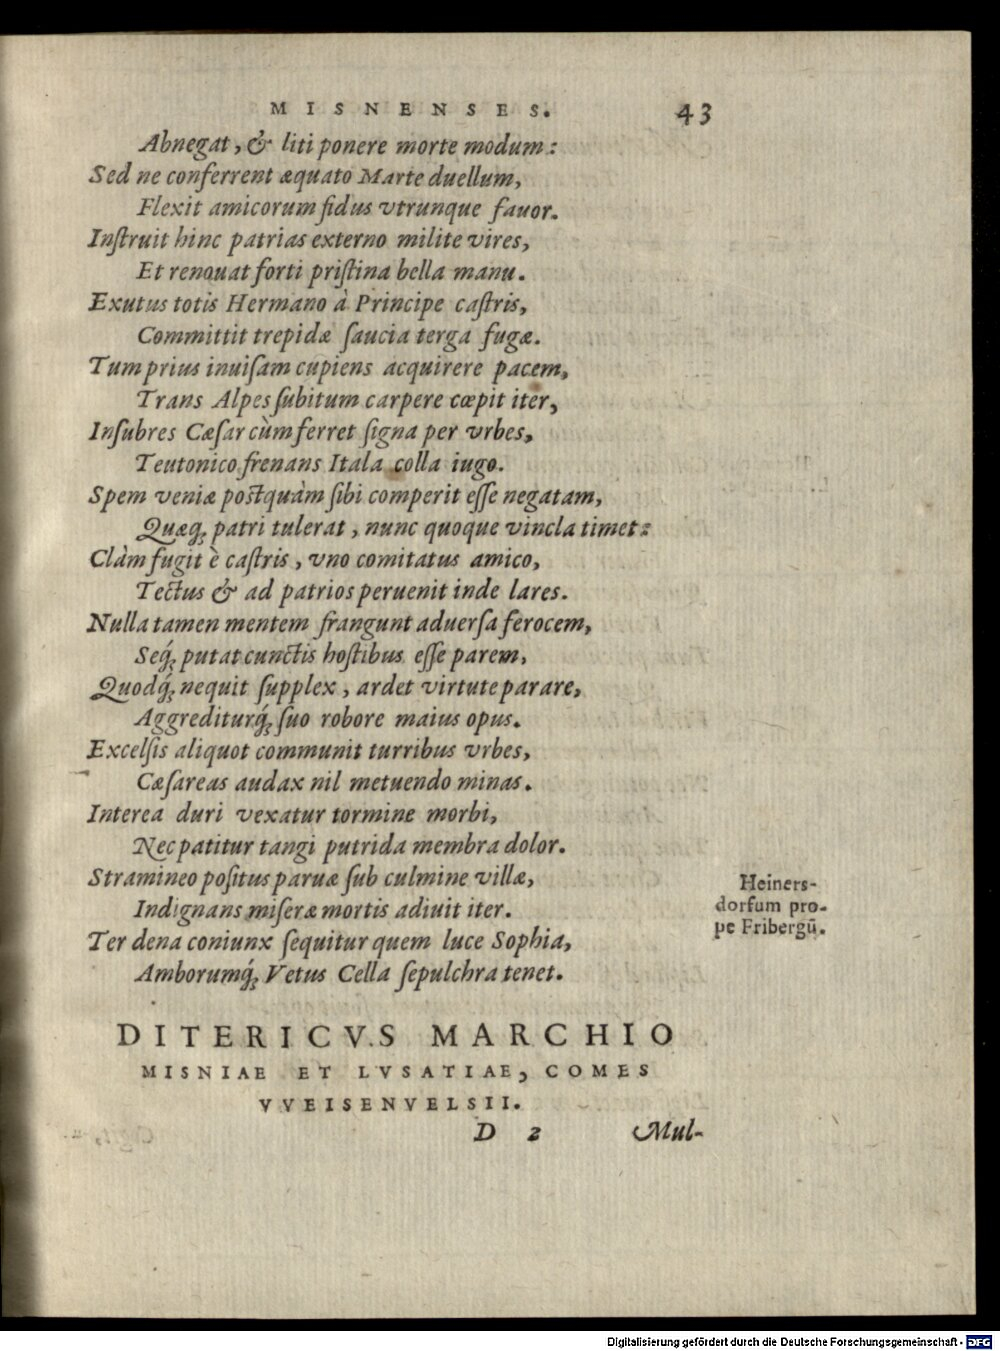 MISNENSES. 43
Abnegat, & liti ponere morte modum:
Sed ne conferrent æquato Marte duellum,
Flexit amicorum fidus vtrunque fauor.
Inſtruit hinc patrias externo milite vires,
Et renouat forti priſtina bella manu.
Exutus totis Hermano à Principe caſtris,
Committit trepidæ ſaucia terga fugæ.
Tum prius inuiſam cupiens acquirere pacem,
Trans Alpes ſubitum carpere cœpit iter,
Inſubres Cæſar cùm ferret ſigna per vrbes,
Teutonico frenans Itala colla iugo.
Spem veniæ poſtquàm ſibi comperit eſſe negatam,
Quæq́; patri tulerat, nunc quoque vincla timet:
Clàm fugit è caſtris, vno comitatus amico,
Tectus & ad patrios peruenit inde lares.
Nulla tamen mentem frangunt aduerſa ferocem,
Seq́; putat cunctis hoſtibus eſſe parem,
Quodq́; nequit ſupplex, ardet virtute parare,
Aggrediturq́; ſuo robore maius opus.
Excelſis aliquot communit turribus vrbes,
Cæſareas audax nil metuendo minas.
Interea duri vexatur tormine morbi,
Nec patitur tangi putrida membra dolor.
Stramineo poſitus paruæ ſub culmine villæ,
Indignans miſeræ mortis adiuit iter.
Ter dena coniunx ſequitur quem luce Sophia,
Amborumq́; Vetus Cella ſepulchra tenet.
Heiners-
dorfum pro-
pe Fribergū.
DITERICVS MARCHIO
MISNIAE ET LVSATIAE, COMES
VVEISENVELSII.
D 2 Mul-
Digitalisierung gefördert durch die Deutsche Forschungsgemeinschaft - DFG